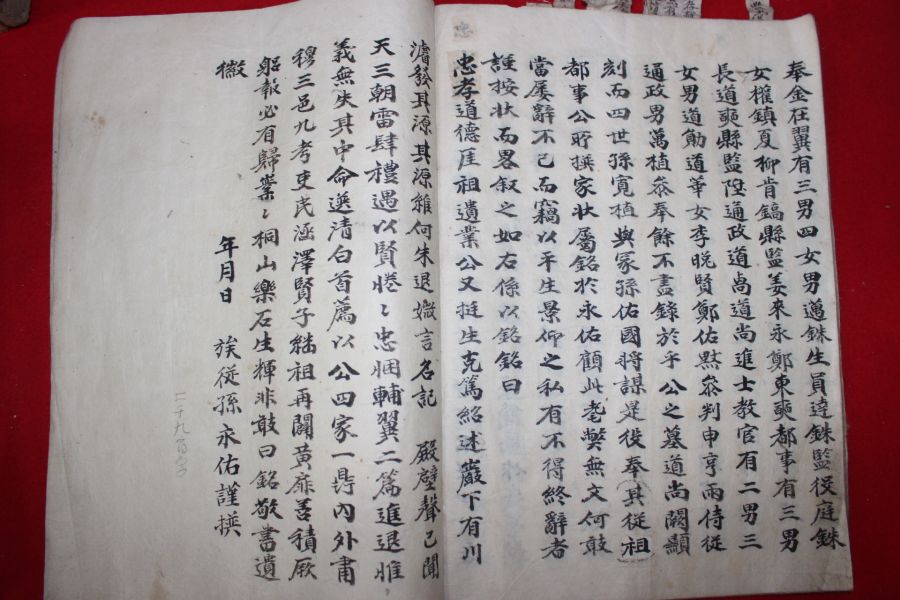 奉金在翼有三男四女男邁銖生員達銖監役庭銖
女權鎮夏柳肯鎬縣監姜來永鄭東奭都事有三男
長道奭縣監陞通政道卨道尚進士教官有二男三
女男道勛道華女李晩賢鄭佑默叅判申亨雨侍從
通政男萬植叅奉餘不盡錄於乎公之墓道尚闕顯
刻而四世孫寬植與冢孫佑國將謀是役奉其從祖
都事公所撰家狀屬銘於永佑顧此耄弊無文何敢
當屢辭不已而竊以平生景仰之私有不得終辭者
謹按狀而畧叙之如右係以銘銘曰
忠孝道德厓祖遺業公又挺生克篤紹述巖下有川
濬發其源其源維何朱退微言名記殿壁聲已聞
天三朝雷肆禮遇以賢惓〻忠悃輔翼二篇進退惟
義無失其中命選清白首薦以公四家一鼎內外甫
穆三邑九考吏民涵澤賢子繼祖再闢黃扉善積厥
躬報必有歸欒〻桐山樂石生輝非敢曰銘敬書遺
徽
年月日 族從孫永佑謹撰
忠